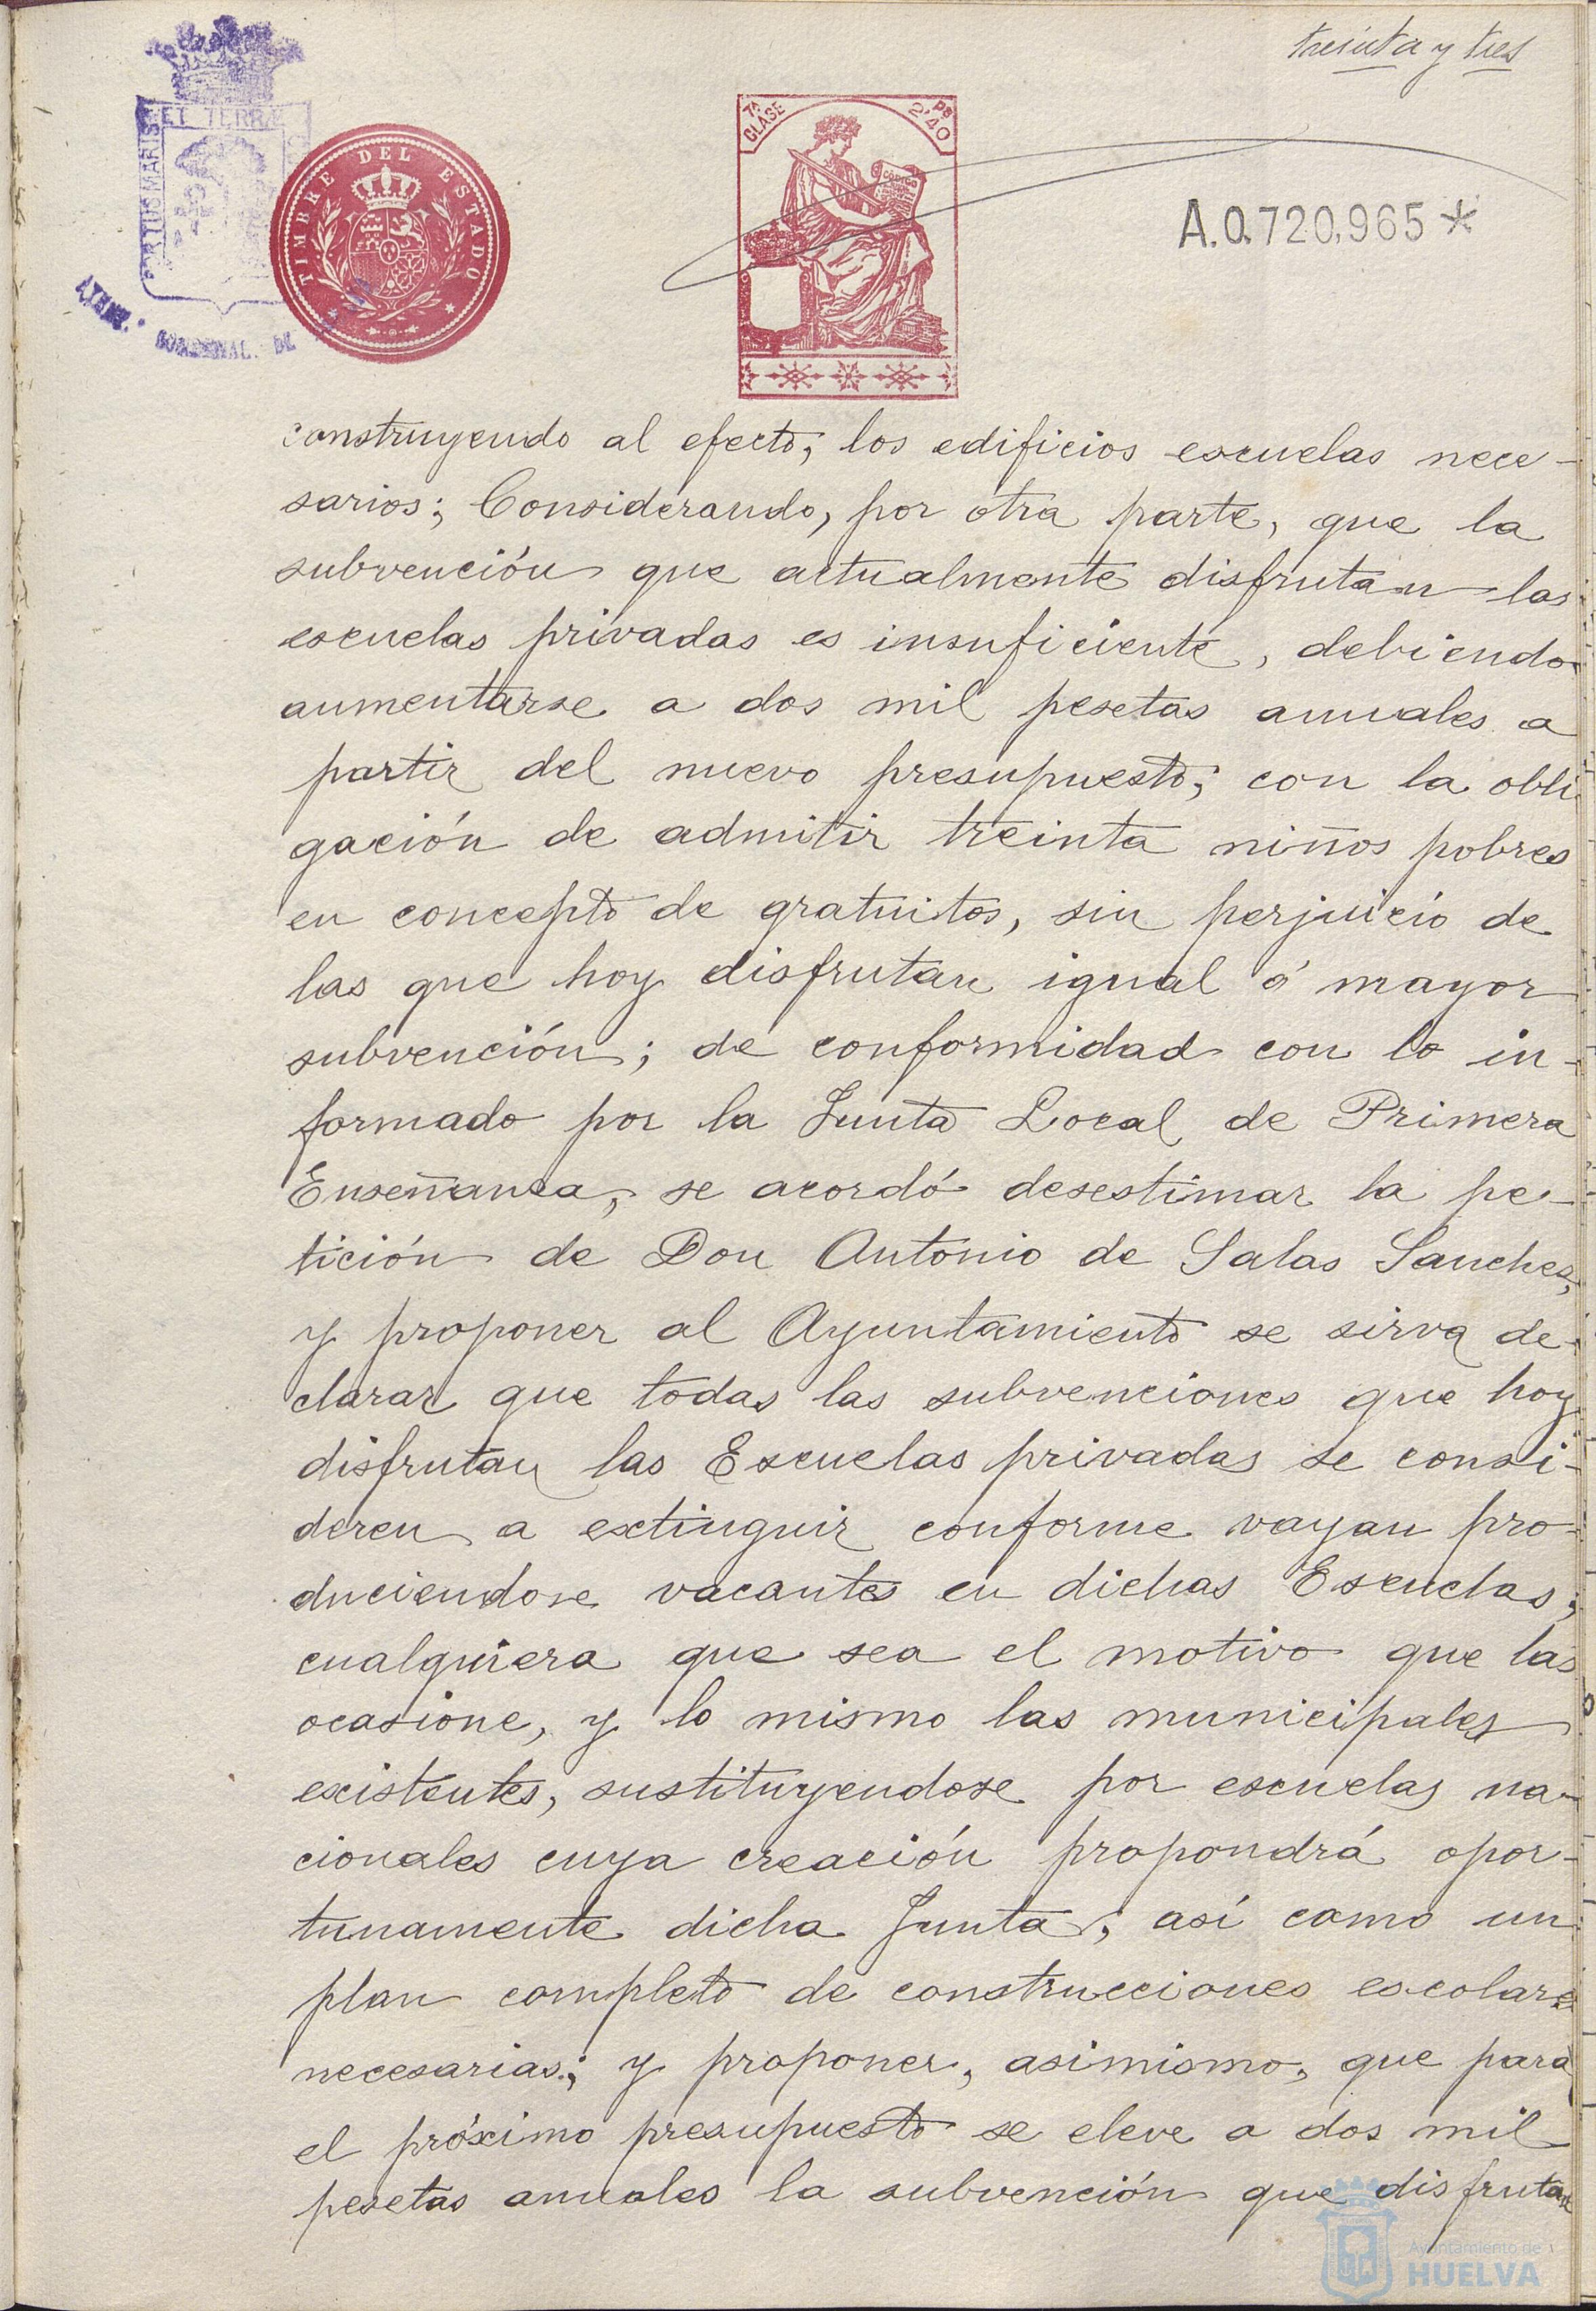 treinta y tres
ET TERRÆ
PORTUS MARIS
TIMBRE DEL ESTADO
7ª CLASE
Ps 2'40
CODIGO
A.0.720,965*
construyendo al efecto, los edificios escuelas nece-
sarios; Considerando, por otra parte, que la
subvención que actualmente disfrutan las
escuelas privadas es insuficiente, debiendo
aumentarse a dos mil pesetas anuales a
partir del nuevo presupuesto; con la obli
gación de admitir treinta niños pobres
en concepto de gratuitos, sin perjuicio de
las que hoy disfrutan igual ó mayor
subvención; de conformidad con lo in-
formado por la Junta Local de Primera
Enseñanza, se acordó desestimar la pe-
tición de Don Antonio de Salas Sanchez,
y proponer al Ayuntamiento se sirva de-
clarar que todas las subvenciones que hoy
disfrutan las Escuelas privadas se consi-
deren a extinguir conforme vayan pro-
duciendose vacantes en dichas Escuelas,
cualquiera que sea el motivo que las
ocasione, y lo mismo las municipales
existentes, sustituyendose por escuelas na-
cionales cuya creación propondrá opor-
tunamente dicha Junta, así como un
plan completo de construcciones escolares
necesarias; y proponer, asimismo, que para
el próximo presupuesto se eleve a dos mil
pesetas anuales la subvención que disfrutan
Ayuntamiento de
HUELVA